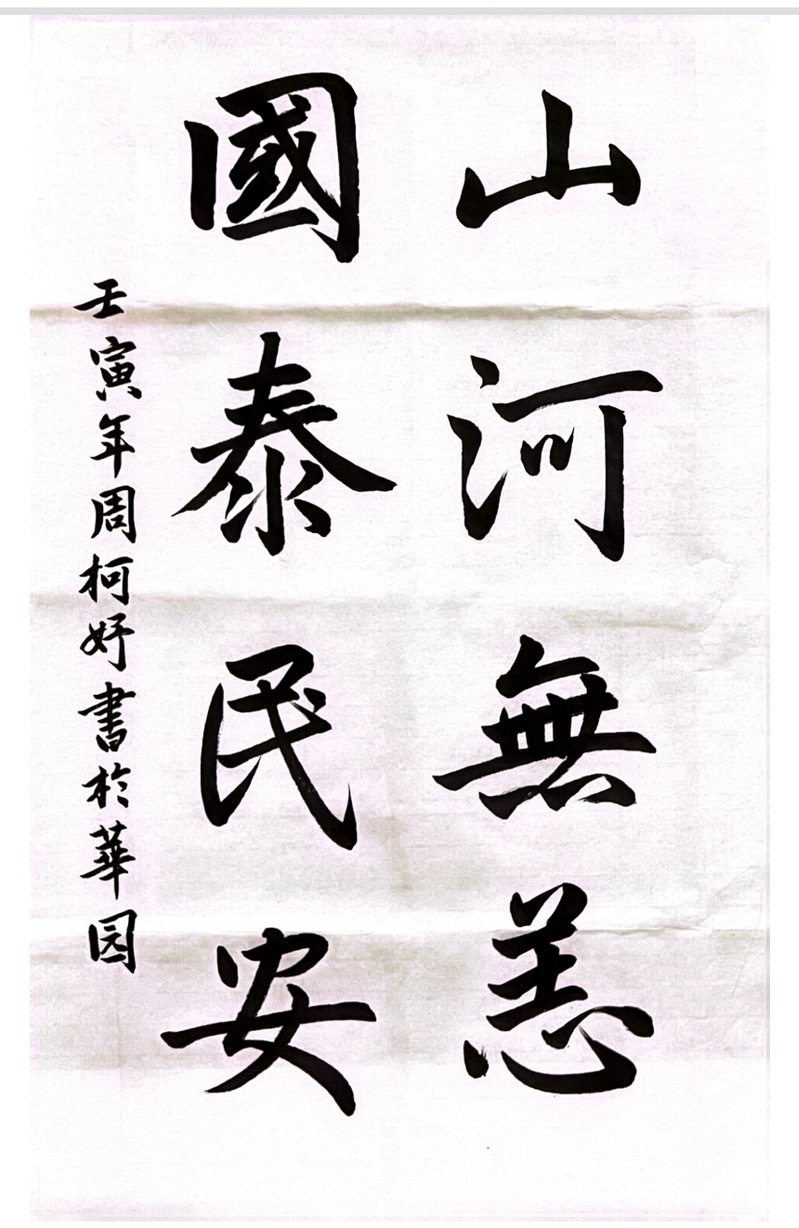 山河無恙
國泰民安
壬寅年周柯妤書於華园